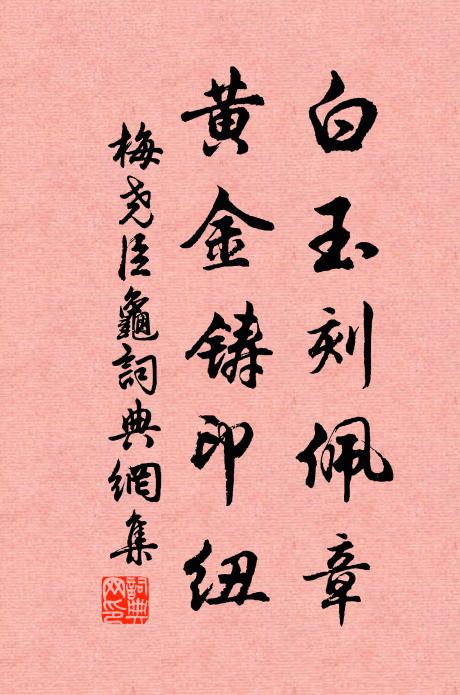 白玉刻佩章
黄金铸印纽
梅尧臣龜詞典網集
詞典网印